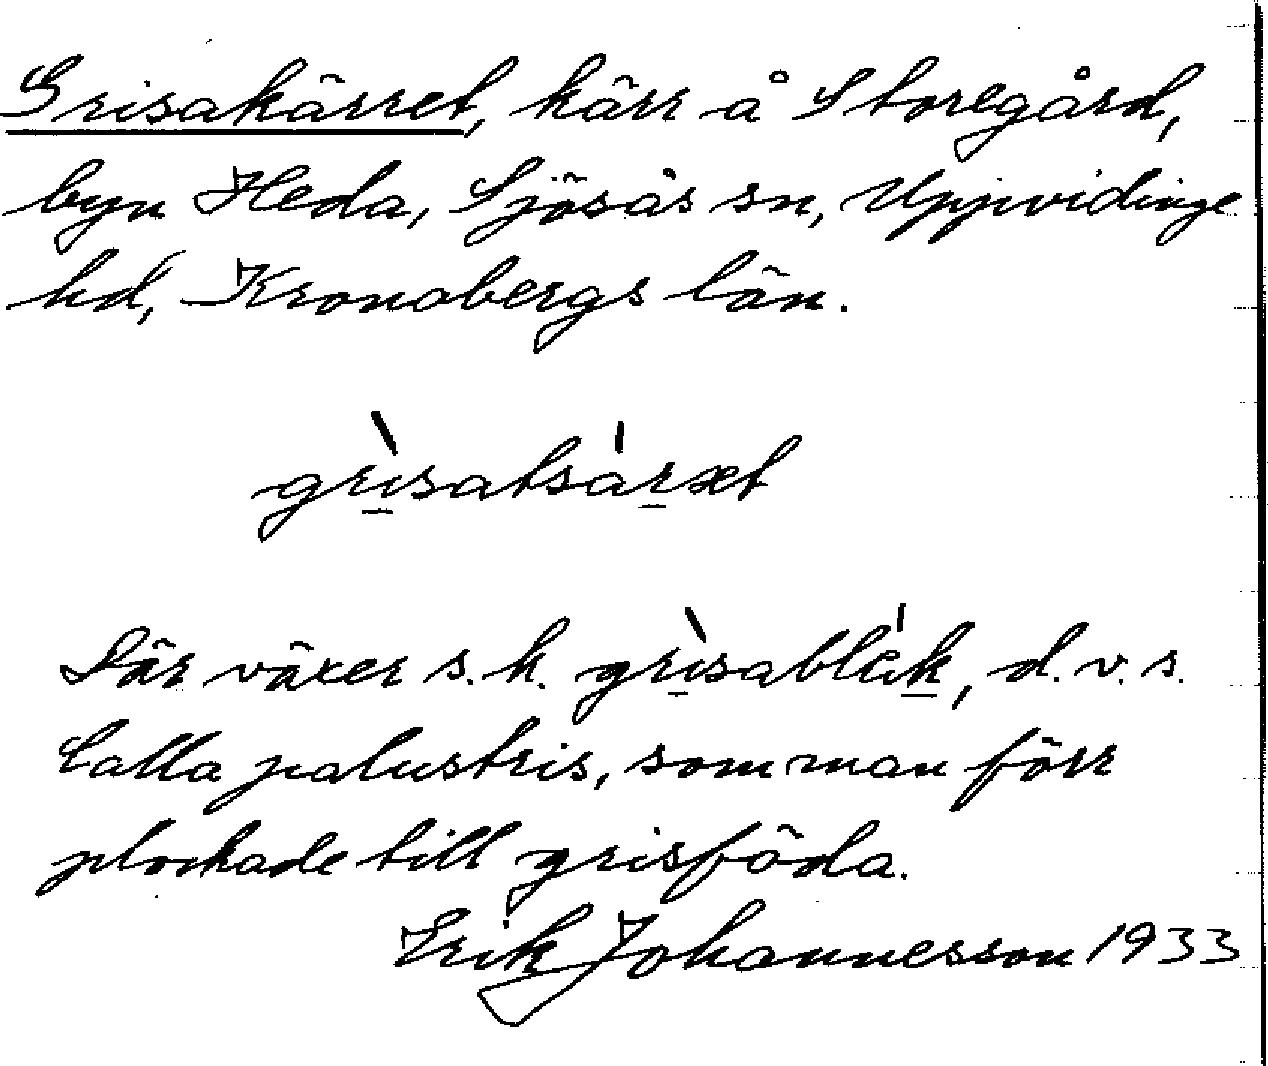 Grisakärret, kärr å Storegård,
byn Heda, Sjösås sn, Uppvidinge
hd, Kronobergs län.
grìsatsárxet
Där växer s.k. grìsablék, d.v.s.
Calla palustris, som man förr
plockade till grisföda.
Erik Johannesson 1933